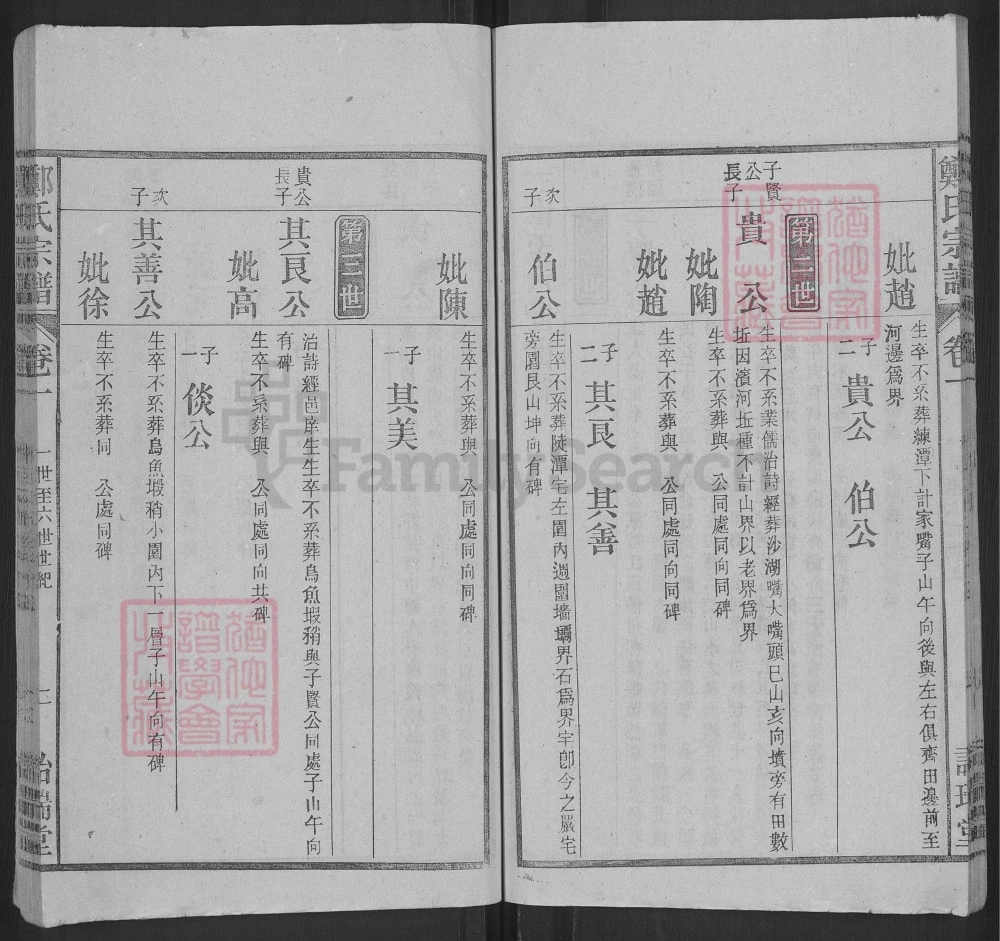 鄭氏宗譜
卷一
妣趙
生卒不系葬練潭下計家嘴子山午向後與左右俱齊田邊前至
河邊爲界
子二 貴公 伯公
第二世
子賢公長子
貴公
生卒不系業儒治詩經葬沙湖嘴大嘴頭巳山亥向墳旁有田數
坵因濱河坵種不計山界以老界爲界
妣陶
生卒不系葬與 公同處同向同碑
妣趙
生卒不系葬與 公同處同向同碑
子二 其艮 其善
次子
伯公
生卒不系葬陡潭宅左園內週圍墻壩界石爲界宇卽今之嚴宅
旁園艮山坤向有碑
妣陳
生卒不系葬與 公同處同向同碑
子一 其美
第三世
貴公長子
其艮公
治詩經邑庠生生卒不系葬烏魚塅稍與子賢公同處子山午向
有碑
妣高
生卒不系葬與 公同處同向共碑
子一 倓公
次子
其善公
生卒不系葬烏魚塅稍小園內下一層子山午向有碑
妣徐
生卒不系葬同 公處同碑
鄭氏宗譜
卷一
一世至六世世紀
FamilySearch